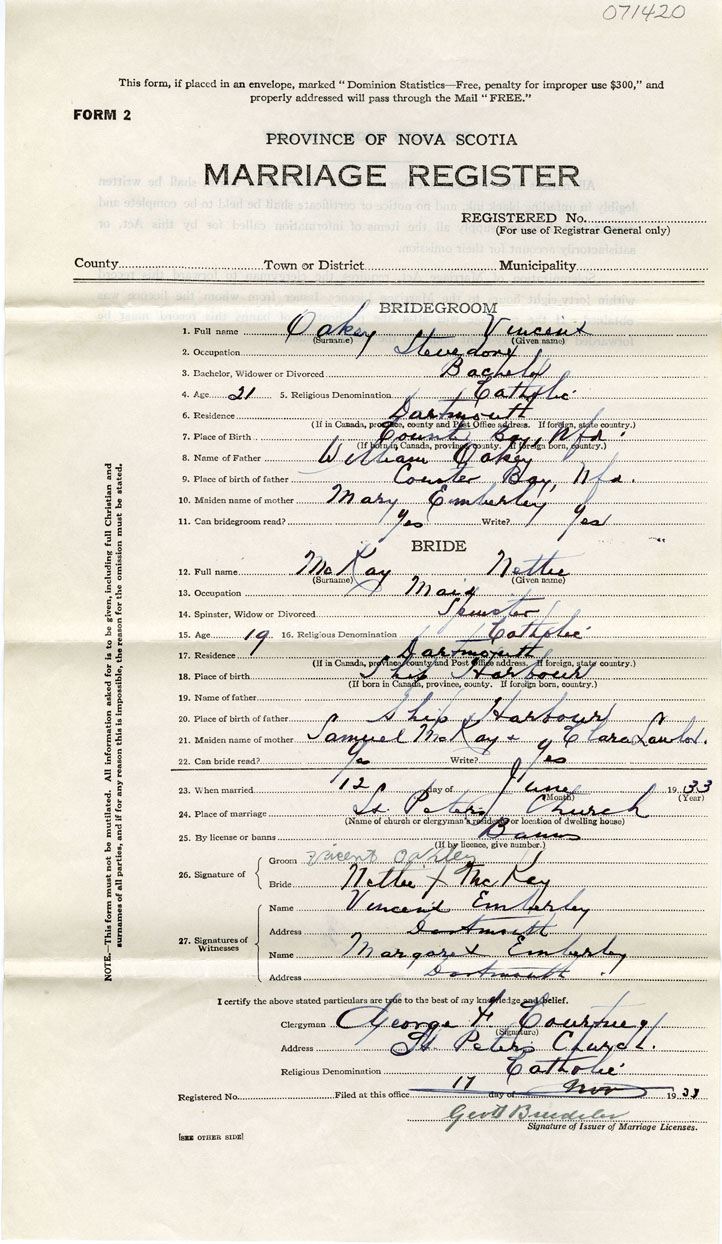 071420
This form, if placed in an envelope, marked “ Dominion Statistics—Free, penalty for improper use $300,” and
properly addressed will pass through the Mail “ FREE.”
FORM 2
PROVINCE OF NOVA SCOTIA
MARRIAGE REGISTER
REGISTERED No.
(For use of Registrar General only)
County Town or District Municipality
BRIDEGROOM
1. Full name Oakey Vincent
(Surname) (Given name)
2. Occupation Stevedore
3. Bachelor, Widower or Divorced Bachelor
4. Age 21 5. Religious Denomination Catholic
6. Residence Dartmouth
(If in Canada, province, county and Post Office address. If foreign, state country.)
7. Place of Birth Bay, Nfd.
(If born in Canada, province, county. If foreign born, country.)
8. Name of Father William Oakey
9. Place of birth of father Bay, Nfd.
10. Maiden name of mother Mary Emberley
11. Can bridegroom read? Yes Write? Yes
BRIDE
12. Full name McKay Nettie
(Surname) (Given name)
13. Occupation Maid
14. Spinster, Widow or Divorced Spinster
15. Age 19 16. Religious Denomination Catholic
17. Residence Dartmouth
(If in Canada, province, county and Post Office address. If foreign, state country.)
18. Place of birth Ship Harbour
(If born in Canada, province, county. If foreign born, country.)
19. Name of father
20. Place of birth of father Ship Harbour
21. Maiden name of mother Samuel McKay + Clara Lawlor.
22. Can bride read? Yes Write? Yes
23. When married 12 day of June 1933
(Month) (Year)
24. Place of marriage St. Peters Church
(Name of church or clergyman's residence or location of dwelling house)
25. By license or banns Banns
(If by licence, give number.)
26. Signature of
Groom Vicent Oakley
Bride Nettie X McKey
27. Signatures of Witnesses
Name Vincent Emberley
Address Dartmouth
Name Margaret Emberley
Address Dartmouth
I certify the above stated particulars are true to the best of my knowledge and belief.
Clergyman George F Courtney
(Signature)
Address St Peters Church.
Religious Denomination Catholic
Registered No. Filed at this office 17 day of Nov 1933
Signature of Issuer of Marriage Licenses.
[SEE OTHER SIDE]
NOTE.—This form must not be mutilated. All information asked for is to be given, including full Christian and
surnames of all parties, and if for any reason this is impossible, the reason for the omission must be stated.